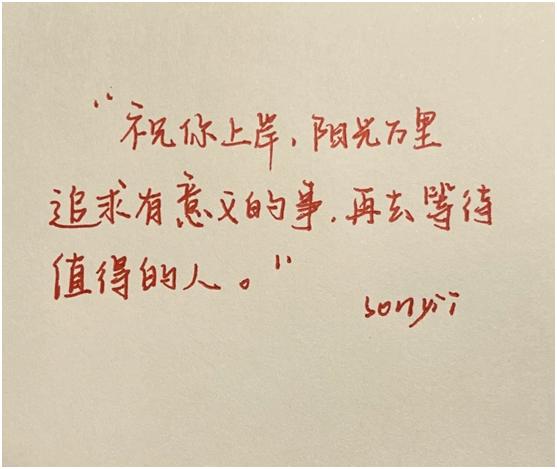 “祝你上岸，阳光万里
追求有意义的事，再去等待
值得的人。”
sonyii